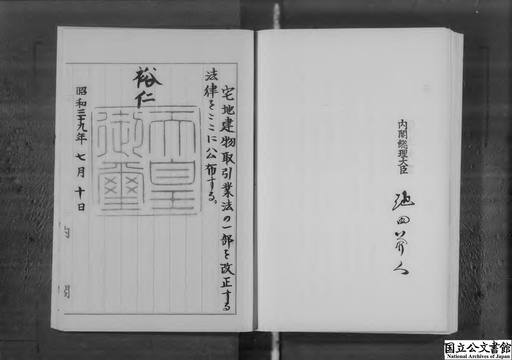 宅地建物取引業法の一部を改正する
法律をここに公布する。
裕仁
天皇
御璽
昭和三十九年七月十日
内閣
内閣総理大臣
池田勇人
国立公文書館
National Archives of Japan